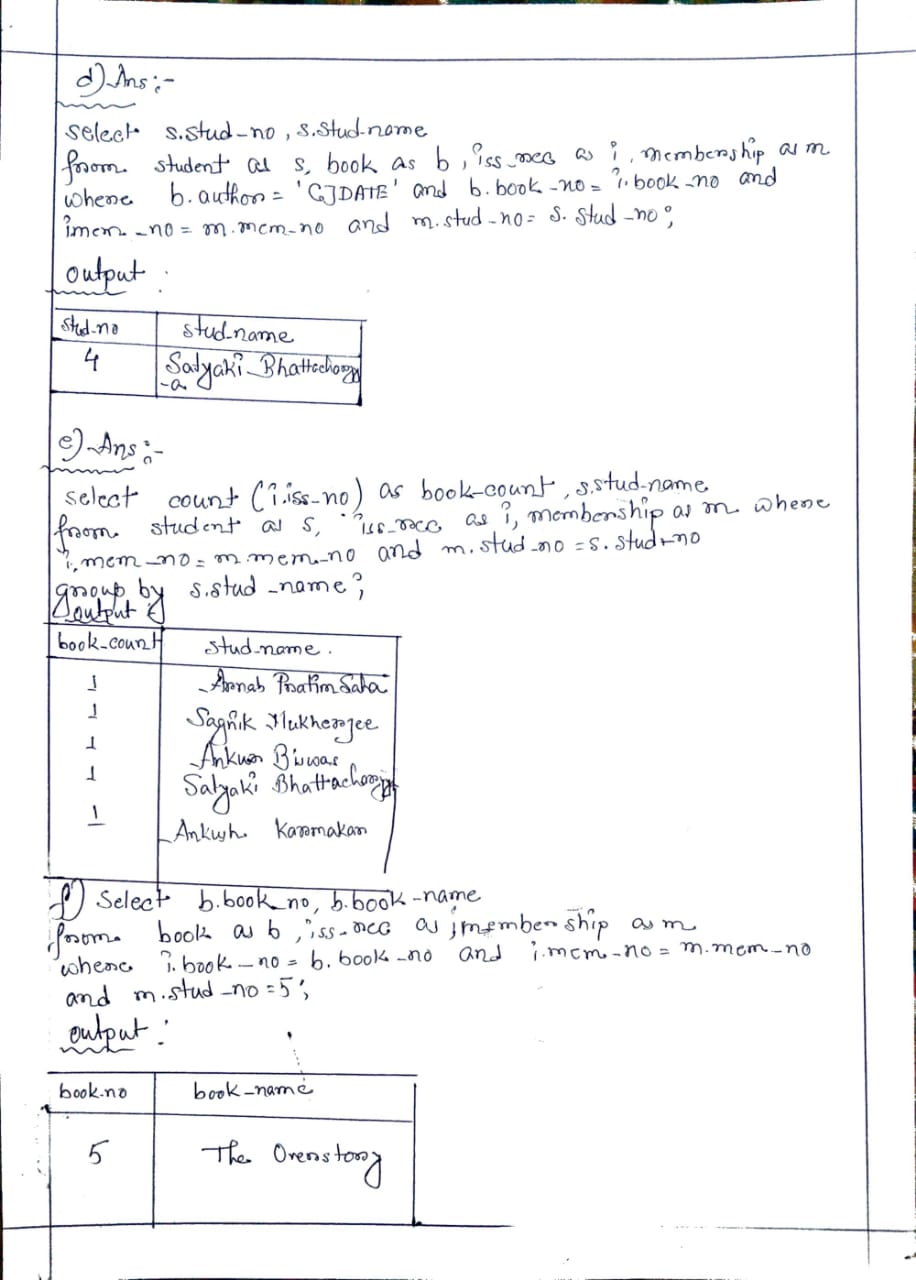 d) Ans :-
select s.stud-no, s.stud-name
from student as s, book as b, iss_rec as i, membership as m
where b.author = 'CJDATE' and b.book-no = i.book-no and
imem-no = m.mem-no and m.stud-no = s.stud-no;
output :
stud-no stud-name
4 Satyaki Bhattacharyy
-a
e) Ans :-
select count (i.iss-no) as book-count, s.stud-name
from student as s, iss-rec as i, membership as m where
i.mem-no = m.mem-no and m.stud-no = s.stud-no
group by s.stud-name;
output :
book-count stud-name.
1 Arnab Pratim Saha
1 Sagnik Mukherjee
1 Ankur Biswas
1 Satyaki Bhattacharjya
1 Ankush Karmakar
f) Select b.book_no, b.book-name
from book as b, iss-rec as i membership as m
where i.book-no = b.book-no and i.mem-no = m.mem-no
and m.stud-no = 5;
output :
book-no book-name
5 The